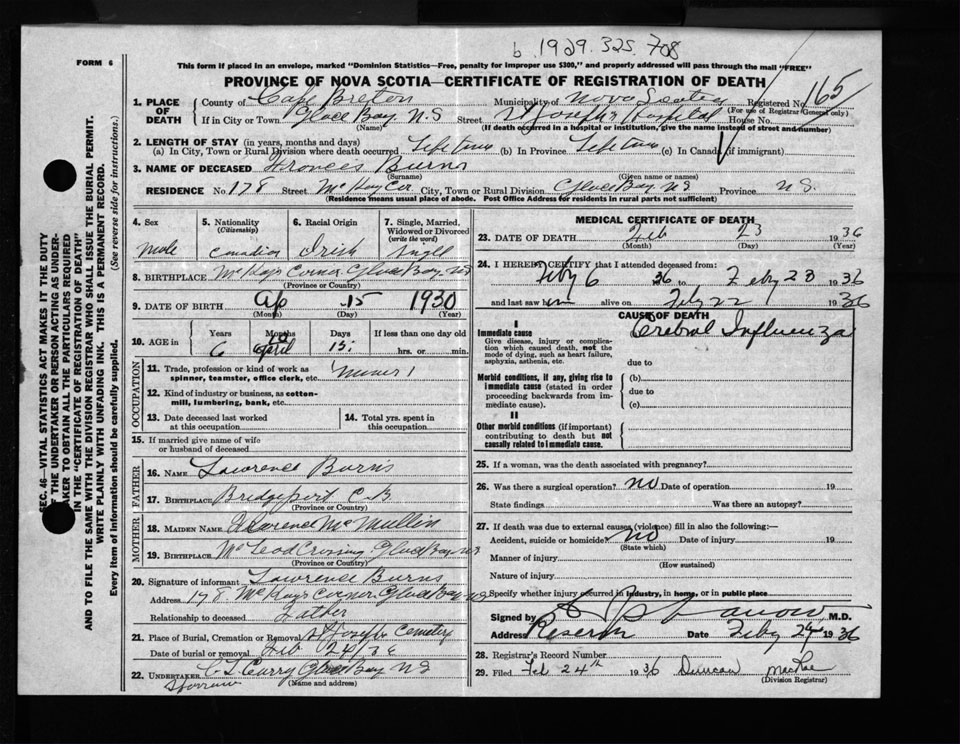 b. 1929. 325. 708
FORM 6
This form if placed in an envelope, marked "Dominion Statistics—Free, penalty for improper use $300," and properly addressed will pass through the mail "FREE"
PROVINCE OF NOVA SCOTIA—CERTIFICATE OF REGISTRATION OF DEATH
1. PLACE OF DEATH County of Cape Breton Municipality of Nova Scotia Registered No. 165
(For use of Registrar General only)
If in City or Town Glace Bay N.S Street St Joseph's Hospital House No.
(Name) (If death occurred in a hospital or institution, give the name instead of street and number)
2. LENGTH OF STAY (in years, months and days)
(a) In City, Town or Rural Division where death occurred Life time (b) In Province Life time (c) In Canada (if immigrant)
3. NAME OF DECEASED Frances Burns
(Surname) (Given name or names)
RESIDENCE No 178 Street McKay Cor City, Town or Rural Division Glace Bay NS Province N S.
(Residence means usual place of abode. Post Office Address for residents in rural parts not sufficient)
SEC. 46—VITAL STATISTICS ACT MAKES IT THE DUTY
OF THE UNDERTAKER OR PERSON ACTING AS UNDER-
TAKER TO OBTAIN ALL THE PARTICULARS REQUIRED
IN THE "CERTIFICATE OF REGISTRATION OF DEATH"
AND TO FILE THE SAME WITH THE DIVISION REGISTRAR WHO SHALL ISSUE THE BURIAL PERMIT.
WRITE PLAINLY WITH UNFADING INK. THIS IS A PERMANENT RECORD.
Every item of Information should be carefully supplied. (See reverse side for instructions.)
4. Sex 5. Nationality (Citizenship) 6. Racial Origin 7. Single, Married, Widowed or Divorced (write the word)
Male Canadian Irish Single
8. BIRTHPLACE McKays Corner Glace Bay NS
(Province or Country)
9. DATE OF BIRTH Ap 15 1930
(Month) (Day) (Year)
10. AGE in Years Months Days If less than one day old
6 April 15 hrs. or min.
OCCUPATION
11. Trade, profession or kind of work as spinner, teamster, office clerk, etc. Miner
12. Kind of industry or business, as cotton-mill, lumbering, bank, etc.
13. Date deceased last worked at this occupation
14. Total yrs. spent in this occupation
15. If married give name of wife or husband of deceased
FATHER
16. NAME Lawrence Burns
17. BIRTHPLACE Bridgeport C.B
(Province or Country)
MOTHER
18. MAIDEN NAME McMullin
19. BIRTHPLACE McLeod Crossing Glace Bay NS
(Province or Country)
20. Signature of informant Lawrence Burns
Address 178. McKays Corner Glace Bay NS
Relationship to deceased Father
21. Place of Burial, Cremation or Removal St Josephs Cemetery
Date of burial or removal Feb 24/36
22. UNDERTAKER C L Curry Glace Bay NS
(Name and address)
MEDICAL CERTIFICATE OF DEATH
23. DATE OF DEATH Feb 23 1936
(Month) (Day) (Year)
24. I HEREBY CERTIFY that I attended deceased from:
Feby 6 1936 to Feby 23 1936
and last saw him alive on Feby 22 1936
CAUSE OF DEATH
I
Immediate cause Cerebral Influenza
Give disease, injury or complication which caused death, not the mode of dying, such as heart failure, asphyxia, asthenia, etc.
due to
Morbid conditions, if any, giving rise to immediate cause (stated in order proceeding backwards from immediate cause).
(b)
due to
(c)
II
Other morbid conditions (if important) contributing to death but not causally related to immediate cause.
25. If a woman, was the death associated with pregnancy?
26. Was there a surgical operation? no Date of operation 19
State findings Was there an autopsy?
27. If death was due to external causes (violence) fill in also the following:—
Accident, suicide or homicide? No Date of injury 19
(State which)
Manner of injury
(How sustained)
Nature of injury
Specify whether injury occurred in industry, in home, or in public place
Signed by M.D.
Address Reserve Date Feby 24 1936
28. Registrar's Record Number
29. Filed Feb 24th 1936 Duncan MacRae
(Division Registrar)